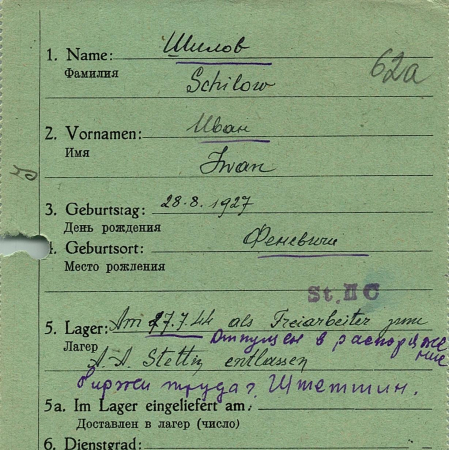 Шилов
1. Name:
Фамилия
62a
Schilow
Иван
2. Vornamen:
Имя
Iwan
3. Geburtstag: 28.8.1927
День рождения
4. Geburtsort: Феневичи
Место рождения
St. II C
5. Lager: Am 27.7.44 als Freiarbeiter zum
Лагер Отпущен в распоряжение
A.A. Stettin entlassen
биржи труда г. Штеттин.
5a. Im Lager eingeliefert am:
Доставлен в лагер (число)
6. Dienstgrad: